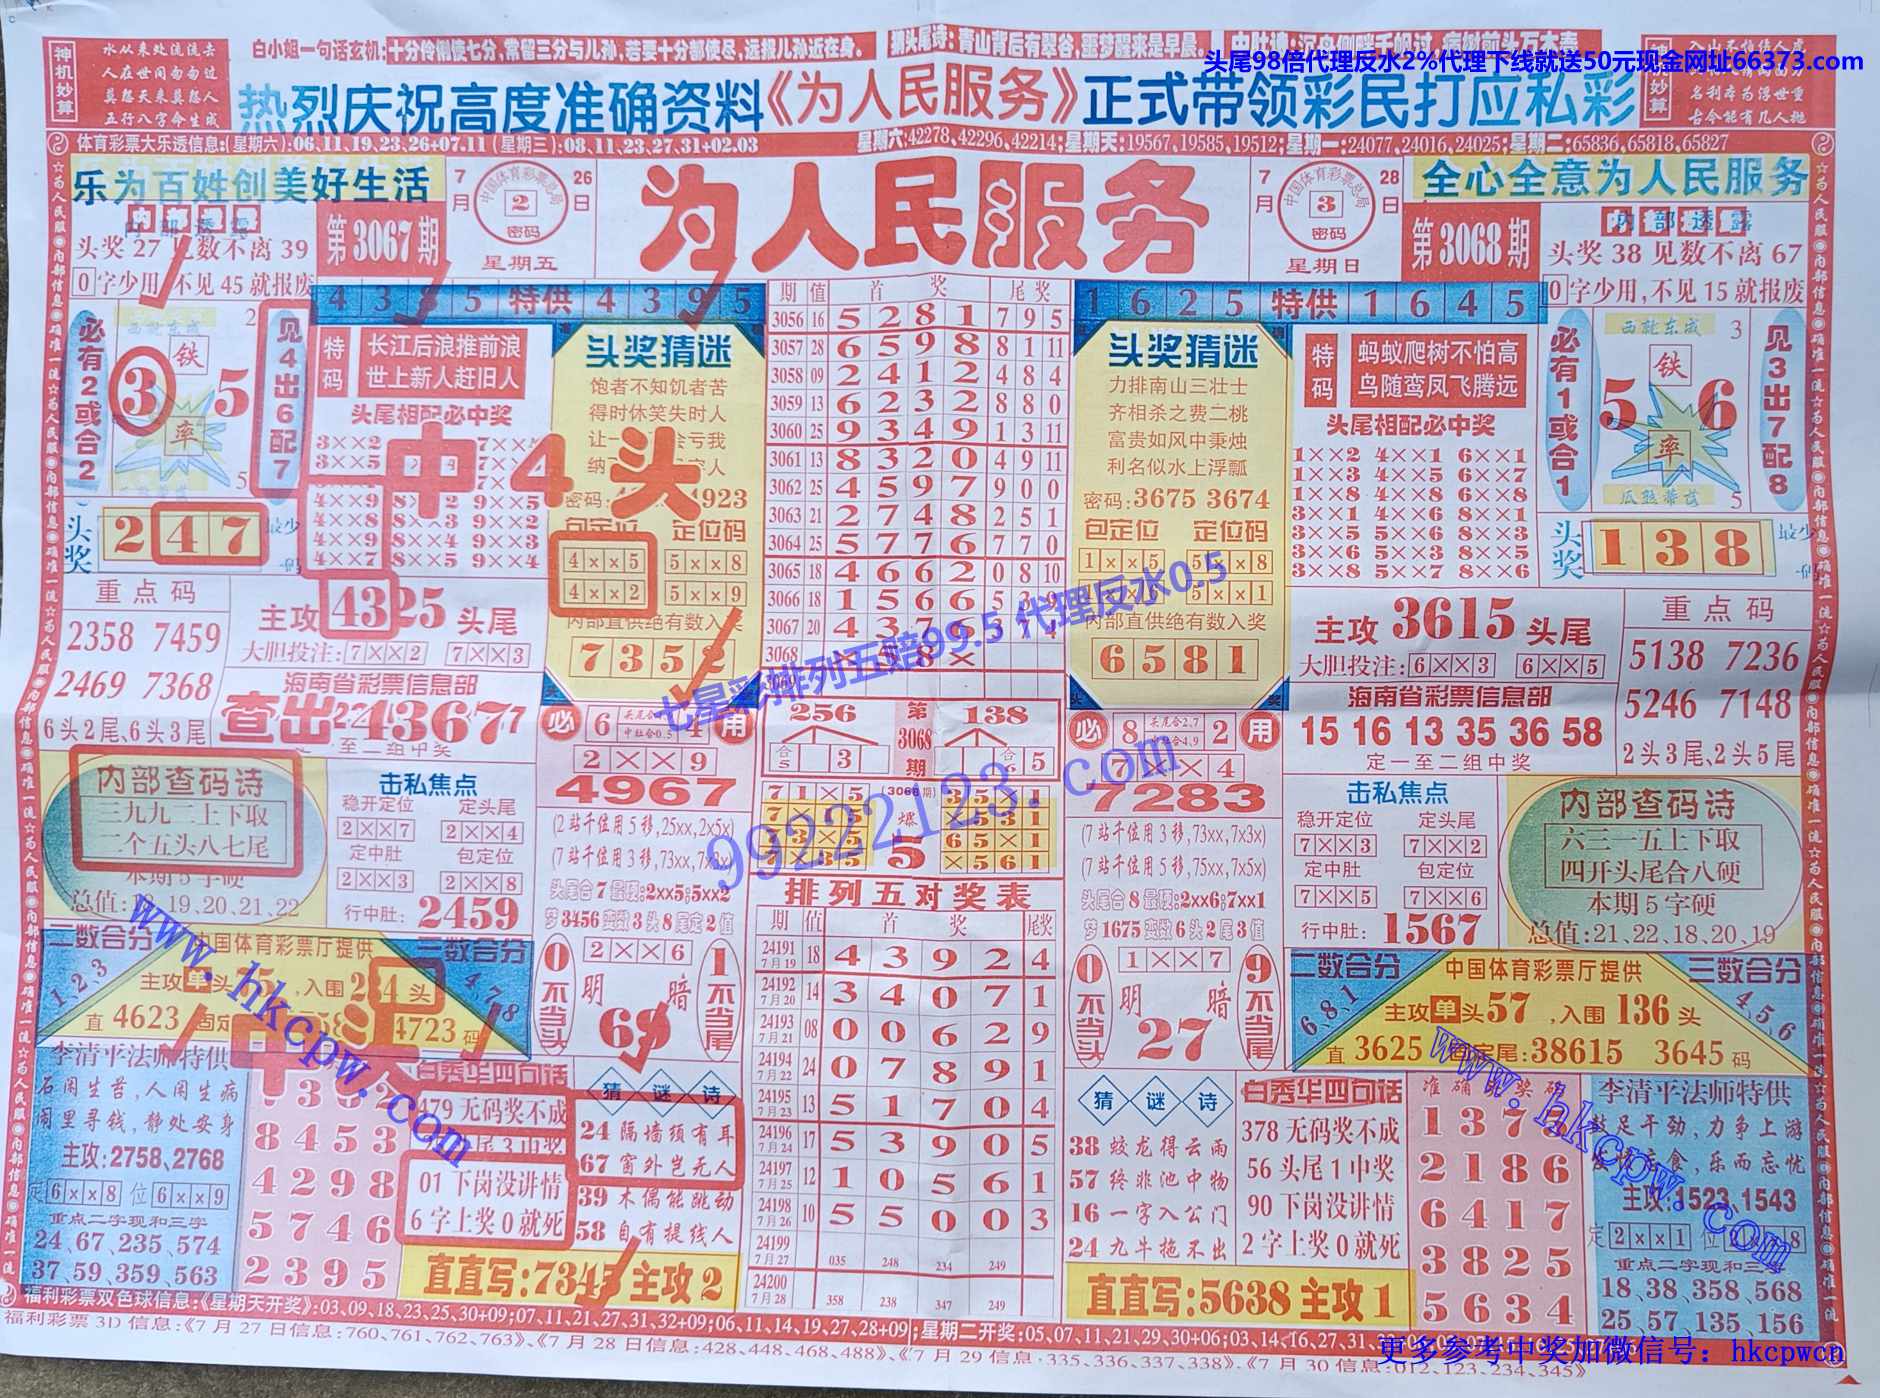 头尾98倍代理反水2%代理下线就送50元现金网址66373.com
神机妙算
水从来处流流去
人在世间匆匆过
莫怨天来莫怨人
五行八字命生成
白小姐一句话玄机:十分伶俐使七分,常留三分与儿孙,若要十分都使尽,远报儿孙近在身。
猜头尾诗:青山背后有翠谷,噩梦醒来是早晨。
热烈庆祝高度准确资料《为人民服务》正式带领彩民打应私彩
名利本为浮世重
古今能有几人抛
体育彩票大乐透信息:(星期六):06,11,19,23,26+07,11 (星期三):08,11,23,27,31+02,03
星期六:42278,42296,42214;星期天:19567,19585,19512;星期一:24077,24016,24025;星期二:65836,65818,65827
乐为百姓创美好生活
内部透露
头奖27见数不离39
0字少用,不见45就报废
第3067期
7月26日
中国体育彩票总局
2
密码
星期五
为人民服务
7月28日
中国体育彩票总局
3
密码
星期日
第3068期
全心全意为人民服务
内部透露
头奖38见数不离67
0字少用,不见15就报废
4 3 9 5 特供 4 3 9 5
必有2或合2
铁
3 5
率
见4出6配7
头奖
2 4 7
最少一码
特码
长江后浪推前浪
世上新人赶旧人
头尾相配必中奖
4××9 8××2 9××5
4××8 8××3 9××2
4××9 8××4 9××3
4××7 8××5 9××4
中4头
头奖猜迷
饱者不知饥者苦
得时休笑失时人
包定位 定位码
4××5 5××8
4××2 5××9
内部直供绝有数入奖
7 3 5 2
重点码
2358 7459
2469 7368
6头2尾、6头3尾
主攻4325头尾
大胆投注:7××2 7××3
海南省彩票信息部
查出4367
期 值 首奖 尾奖
3056 16 5 2 8 1 7 9 5
3057 28 6 5 9 8 8 1 11
3058 09 2 4 1 2 4 8 4
3059 13 6 2 3 2 8 8 0
3060 25 9 3 4 9 1 3 11
3061 13 8 3 2 0 4 9 11
3062 25 4 5 9 7 9 0 0
3063 21 2 7 4 8 2 5 1
3064 25 5 7 7 6 7 7 0
3065 18 4 6 6 2 0 8 10
3066 18 1 5 6 6
3067 20 4 3 7 6
3068
1 6 2 5 特供 1 6 4 5
头奖猜迷
力排南山三壮士
齐相杀之费二桃
富贵如风中秉烛
利名似水上浮瓢
密码:3675 3674
包定位 定位码
1××5 5××8
1××6 5××1
内部直供绝有数入奖
6 5 8 1
特码
蚂蚁爬树不怕高
鸟随鸾凤飞腾远
头尾相配必中奖
1××2 4××1 6××1
1××3 4××5 6××7
1××8 4××6 6××8
3××1 4××6 8××1
3××5 5××6 8××3
3××6 5××3 8××5
3××8 5××7 8××6
必有1或合1
西驼东成
铁
5 6
率
瓜熟蒂落
见3出7配8
头奖
1 3 8
主攻3615头尾
大胆投注:6××3 6××5
海南省彩票信息部
15 16 13 35 36 58
定一至二组中奖
重点码
5138 7236
5246 7148
2头3尾、2头5尾
七星彩排列五赔99.5 代理反水0.5
99222123.com
内部查码诗
三九九二上下取
二个五头八七尾
本期5字硬
击私焦点
稳开定位 定头尾
2××7 2××4
定中肚 包定位
2××3 2××8
行中肚:2459
必 6 4 用
2××9
4967
(2站千位用5移,25xx,2x5x)
(7站千位用3移,73xx,7x3x)
头尾合7最硬:2xx5;5xx2
梦3456变数3头8尾定2值
0不当头
2××6
明 暗
69
1不当尾
256 第3068期 138
排列五对奖表
期 值 首奖 尾奖
24191 7月19 18 4 3 9 2 4
24192 7月20 14 3 4 0 7 1
24193 7月21 08 0 0 6 2 9
24194 7月22 24 0 7 8 9 1
24195 7月23 13 5 1 7 0 4
24196 7月24 17 5 3 9 0 5
24197 7月25 12 1 0 5 6 1
24198 7月26 10 5 5 0 0 3
24199 7月27 035 248 234 249
24200 7月28 358 238 347 249
必 8 2 用
7××4
7283
(7站千位用3移,73xx,7x3x)
(7站千位用5移,75xx,7x5x)
头尾合8最硬:2xx6;7xx1
梦1675变数6头2尾3值
0不当头
1××7
明 暗
27
9不当尾
击私焦点
稳开定位 定头尾
7××3 7××2
定中肚 包定位
7××5 7××6
行中肚:1567
内部查码诗
六三一五上下取
四开头尾合八硬
本期5字硬
总值:21、22、18、20、19
二数合分
1、2、3
中国体育彩票厅提供
三数合分
4、7、8
直4623
4723码
二数合分
6、8、1
中国体育彩票厅提供
主攻单头57,入围136头
直3625 固定尾:38615 3645码
三数合分
4、5、6
李清平法师特供
石闲生苔,人闲生病
闹里寻钱,静处安身
主攻:2758、2768
定6××8位6××9
重点二字现和三字
24、67、235、574
37、59、359、563
8 4 5 3
4 2 9 8
5 7 4 6
2 3 9 5
白秀华四句话
479无码奖不成
01下岗没讲情
6字上奖0就死
猜谜诗
24隔墙须有耳
67窗外岂无人
39木偶能跳动
58自有提线人
直直写:7345主攻2
猜谜诗
38蛟龙得云雨
57终非池中物
16一字入公门
24九牛拖不出
白秀华四句话
378无码奖不成
56头尾1中奖
90下岗没讲情
2字上奖0就死
直直写:5638主攻1
2 1 8 6
6 4 1 7
3 8 2 5
5 6 3 4
李清平法师特供
鼓足干劲,力争上游
发愤忘食,乐而忘忧
主攻:1523、1543
重点二字现和三字
18、38、358、568
25、57、135、156
www.hkcpw.com
www.hkcpw.com
福利彩票双色球信息:《星期天开奖》:03,09,18,23,25,30+09;07,11,21,27,31,32+09;06,11,14,19,27,28+09;星期二开奖:05,07,11,21,29,30+06;03,14,16,27,31
福利彩票3D信息:《7月27日信息:760,761,762,763》、《7月28日信息:428,448,468,488》、《7月29信息:335,336,337,338》、《7月30信息:012,123,234,345》
更多参考中奖加微信号:hkcpwcn